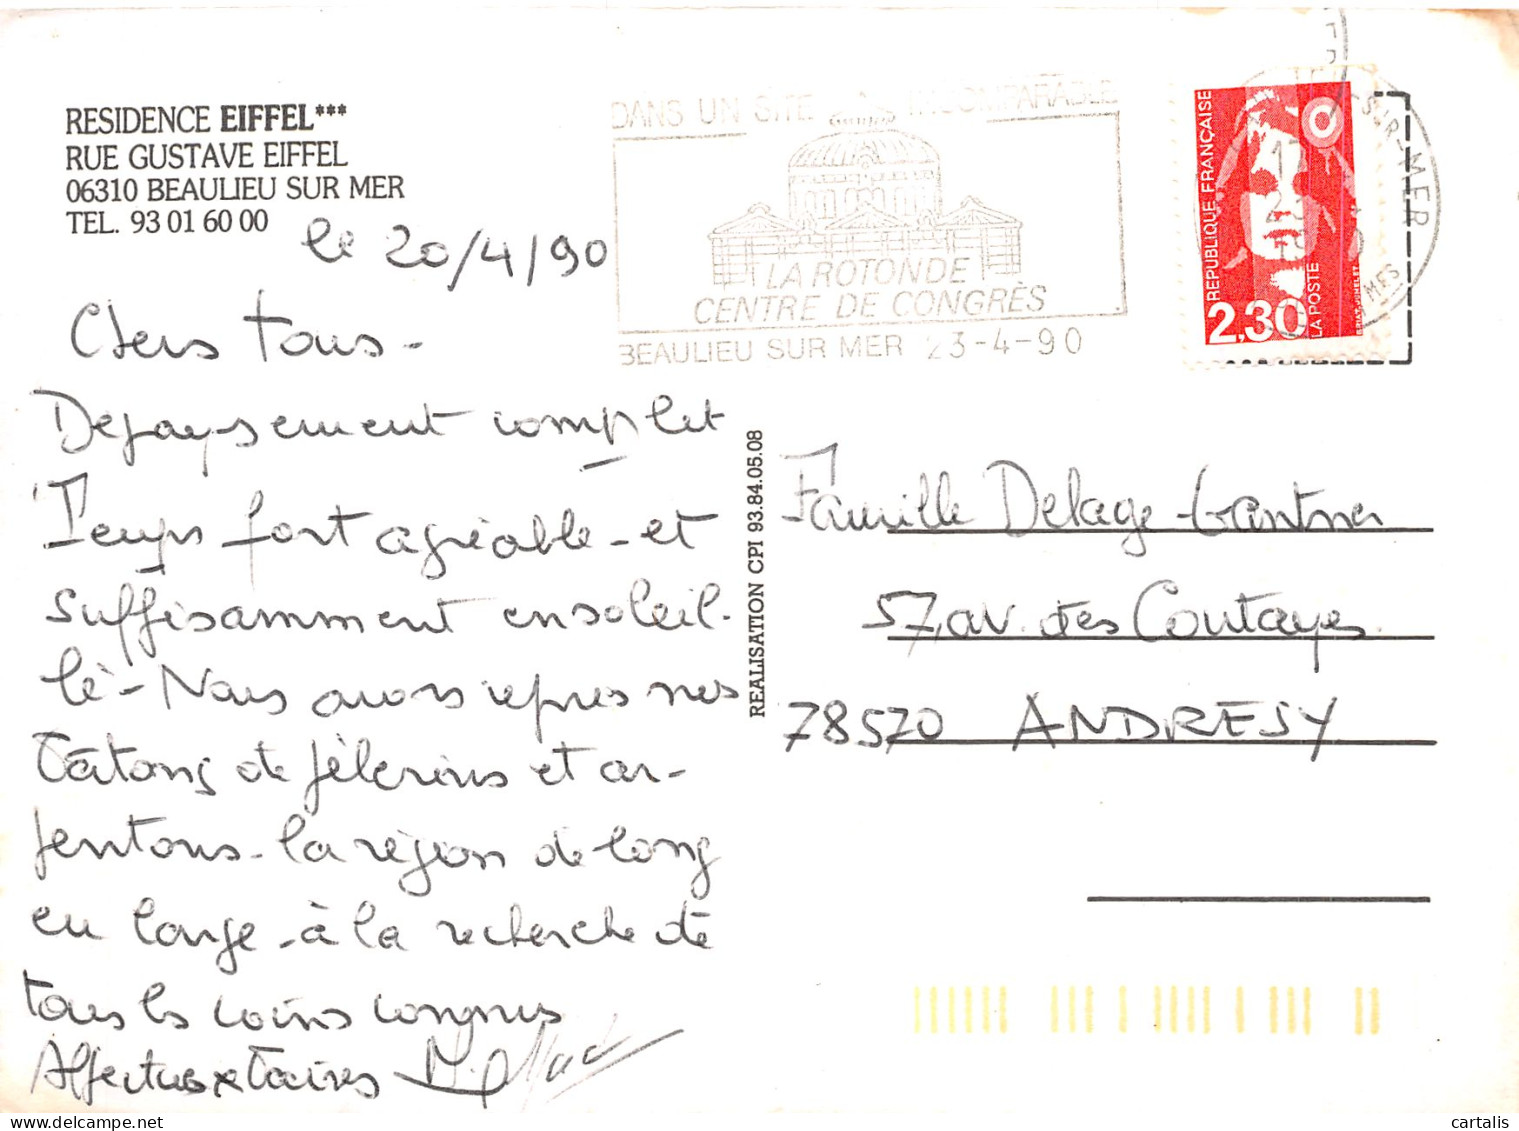 RESIDENCE EIFFEL***
RUE GUSTAVE EIFFEL
06310 BEAULIEU SUR MER
TEL. 93 01 60 00
le 20/4/90
Chers tous -
Depaysement complet
Temps fort agréable - et
suffisamment ensoleil-
lé - Nous avons repris nos
batons de pèlerins et ar-
pentons - la région de long
en large - à la recherche de
tous les coins
Affectueux
DANS UN SITE INCOMPARABLE
LA ROTONDE
CENTRE DE CONGRÈS
BEAULIEU SUR MER 23-4-90
REPUBLIQUE FRANÇAISE
2,30
LA POSTE
SUR-MER
REALISATION CPI 93.84.05.08
Famille Delage-Gantner
57, av. des Coutayes
78570 ANDRESY
cartalis